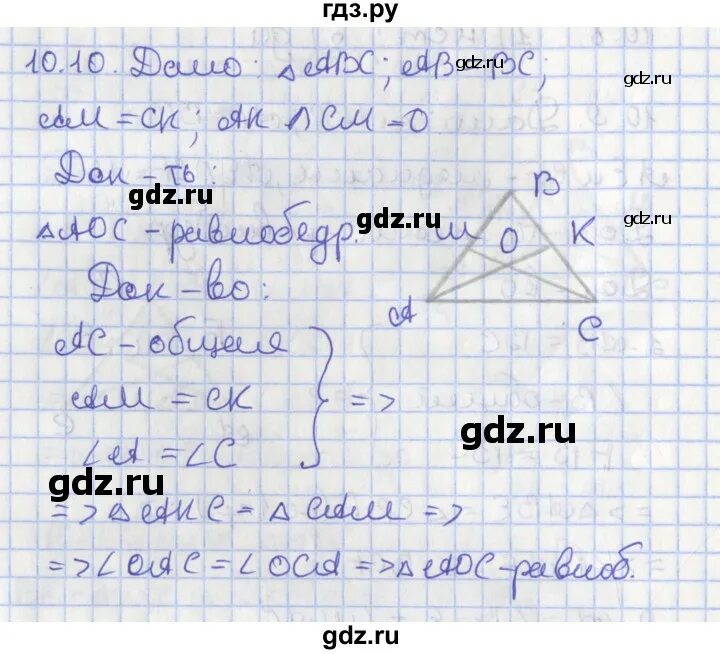 гдз.ру
10.10. Дано: △ABC; AB=BC;
gdz.ru
gdz.ru
AM = CK; AK ∩ CM = O
Док-ть:
gdz.ru
gdz.ru
gdz.ru
△AOC - равнобедр.
B
M O K
A C
Док-во:
AC - общая
AM = CK
∠A = ∠C
} =>
gdz.ru
gdz.ru
=> △AKC = △CAM =>
=> ∠OAC = ∠OCA => △AOC - равноб.
gdz.ru